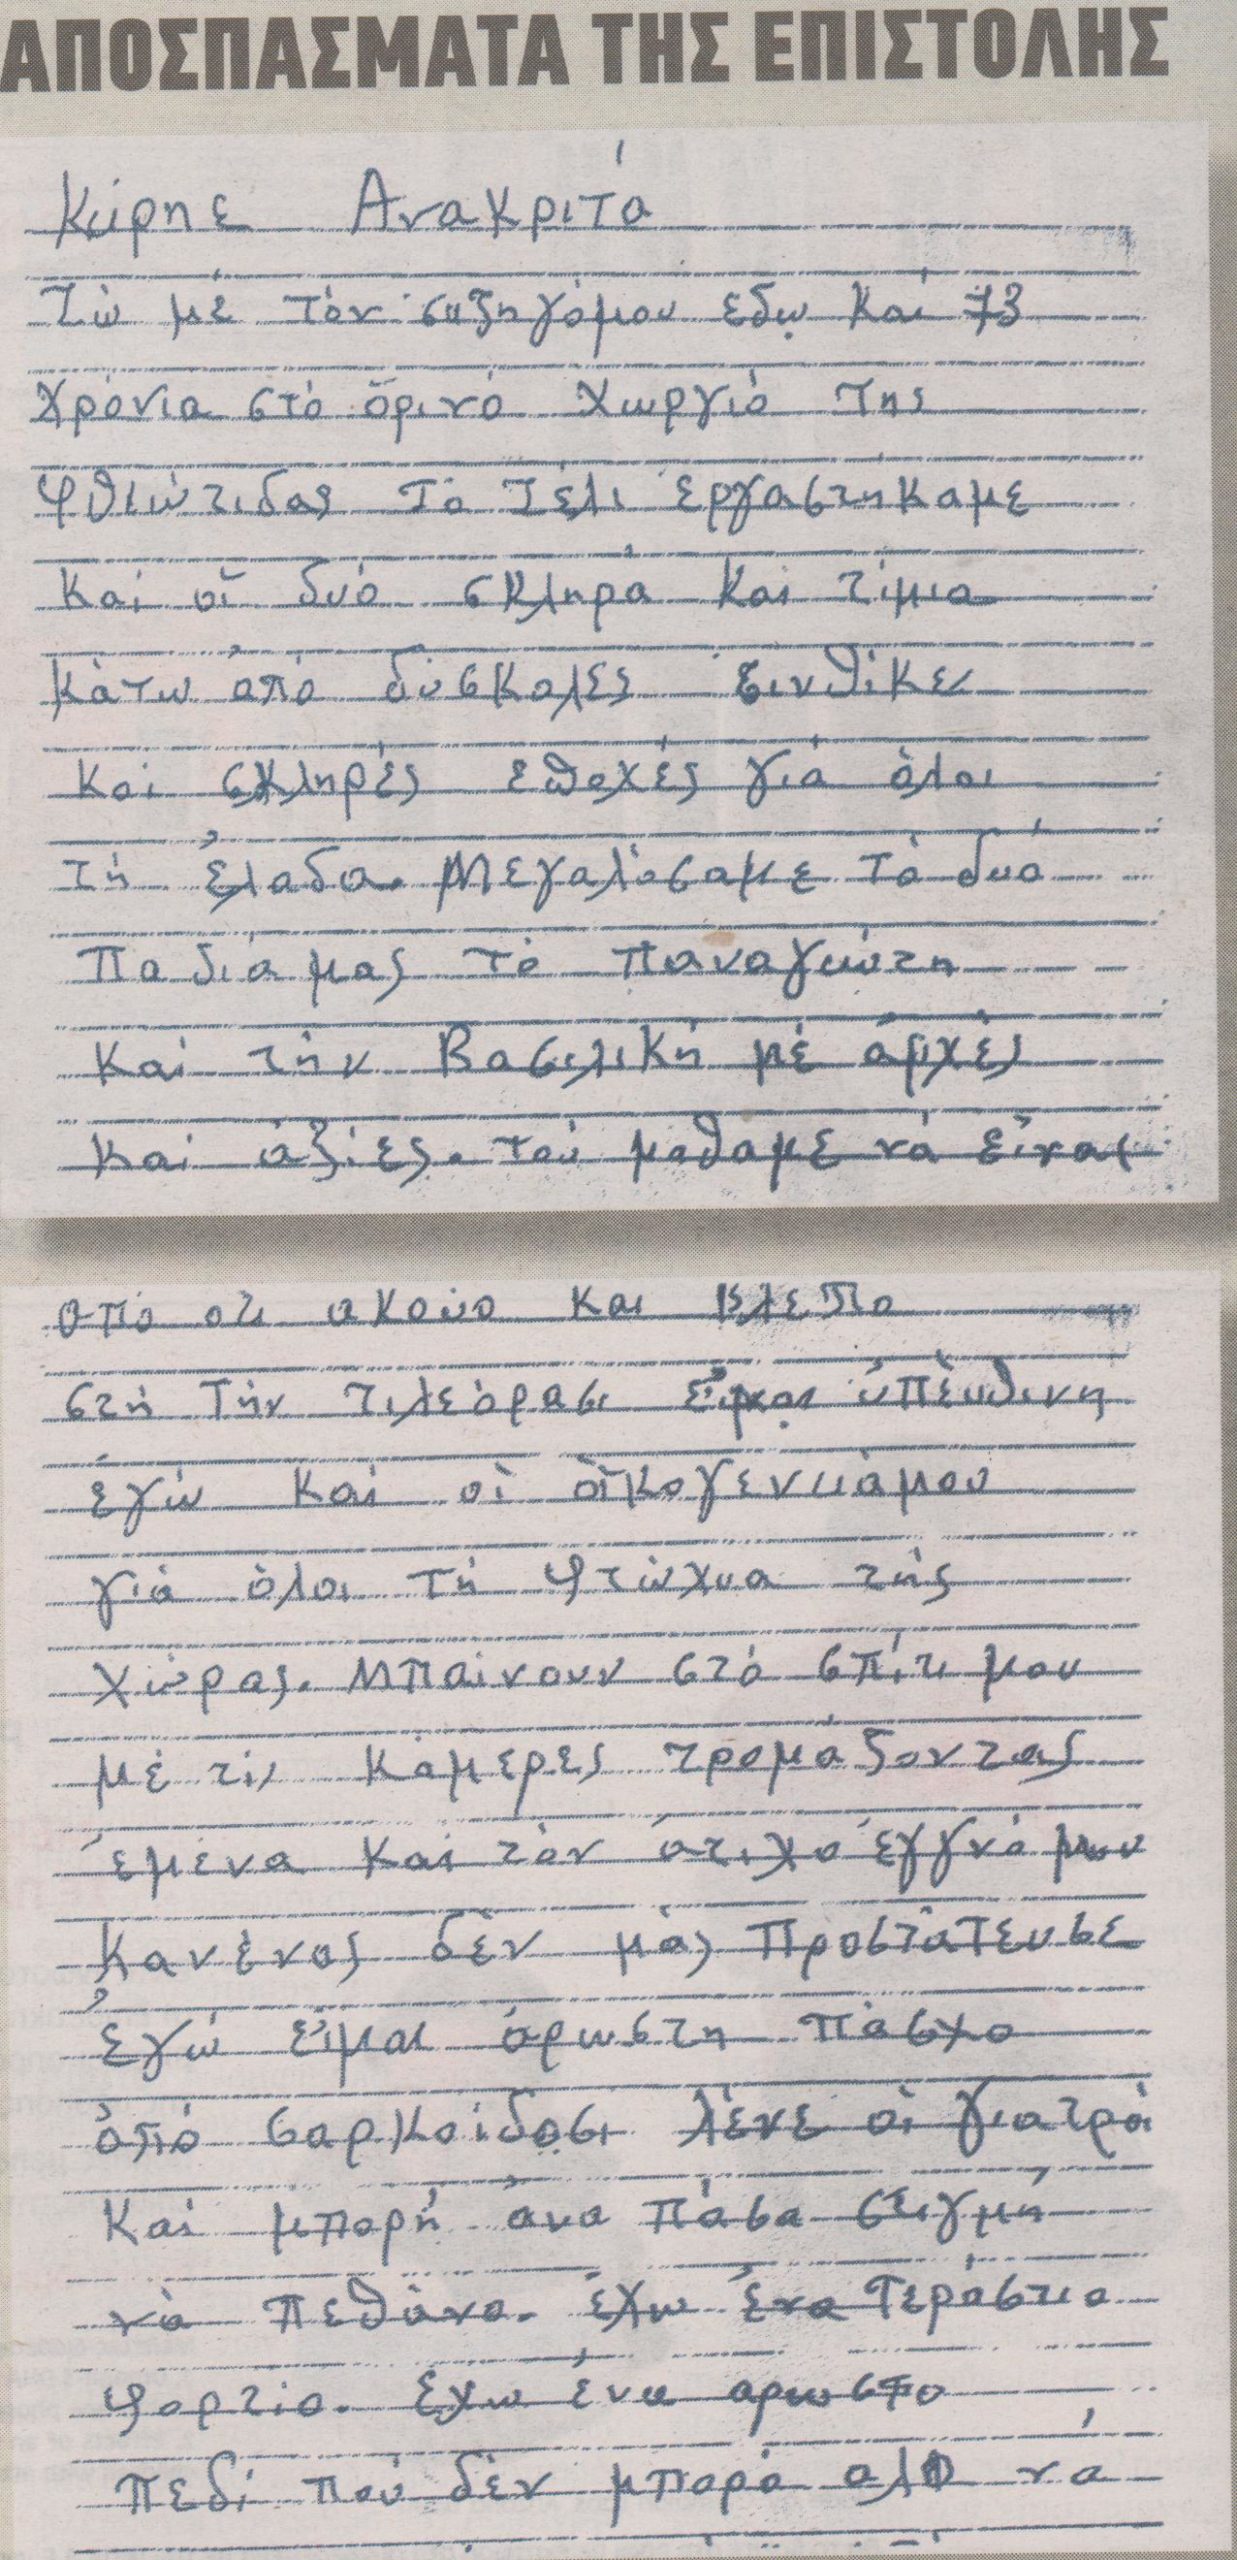 ΑΠΟΣΠΑΣΜΑΤΑ ΤΗΣ ΕΠΙΣΤΟΛΗΣ
Κύρηε Ανακριτά
Ζώ μέ τόν συζηγόμου εδω και 73
χρόνια στό ὄρινό χωργιό της
φθιώτιδας τό Τέλι έργαστήκαμε
και οἵ δυό σκληρά και τίμια
κάτω ἀπό δύσκολες ξινθίκες
και σκληρές εποχές γιά όλοι
τή ἐλαδα. Μεγαλόσαμε τά δυο
παδιά μας τό παναγιώτη
και τήν Βασιλική μέ άρχές
και άξίες. τού μαθαμε νά εἴναι
από οτι ακούο και βλεπο
στή τήν τιλεόρασι εἴμαι ύπέυθινη
έγώ και οἱ οἴκογενιάμου
γιά όλοι τή φτώχυα τής
χώρας. Μπαίνουν στό σπίτι μου
μέ τίς κάμερες τρομάζοντας
έμένα και τόν άτιχο έγγνό μου
κανένας δέν μάς προστάτευσε
ἐγώ εἴμαι άρωστη πάσχο
ἀπό σαρκοίδοσι λένε οἱ γιατρόι
και μπορή άνα πάσα στιγμή
νά πεθάνο. έχω ένα τεράστιο
φορτίο. έχω ένα αρωστο
πεδί πού δέν μπορά αλο νά